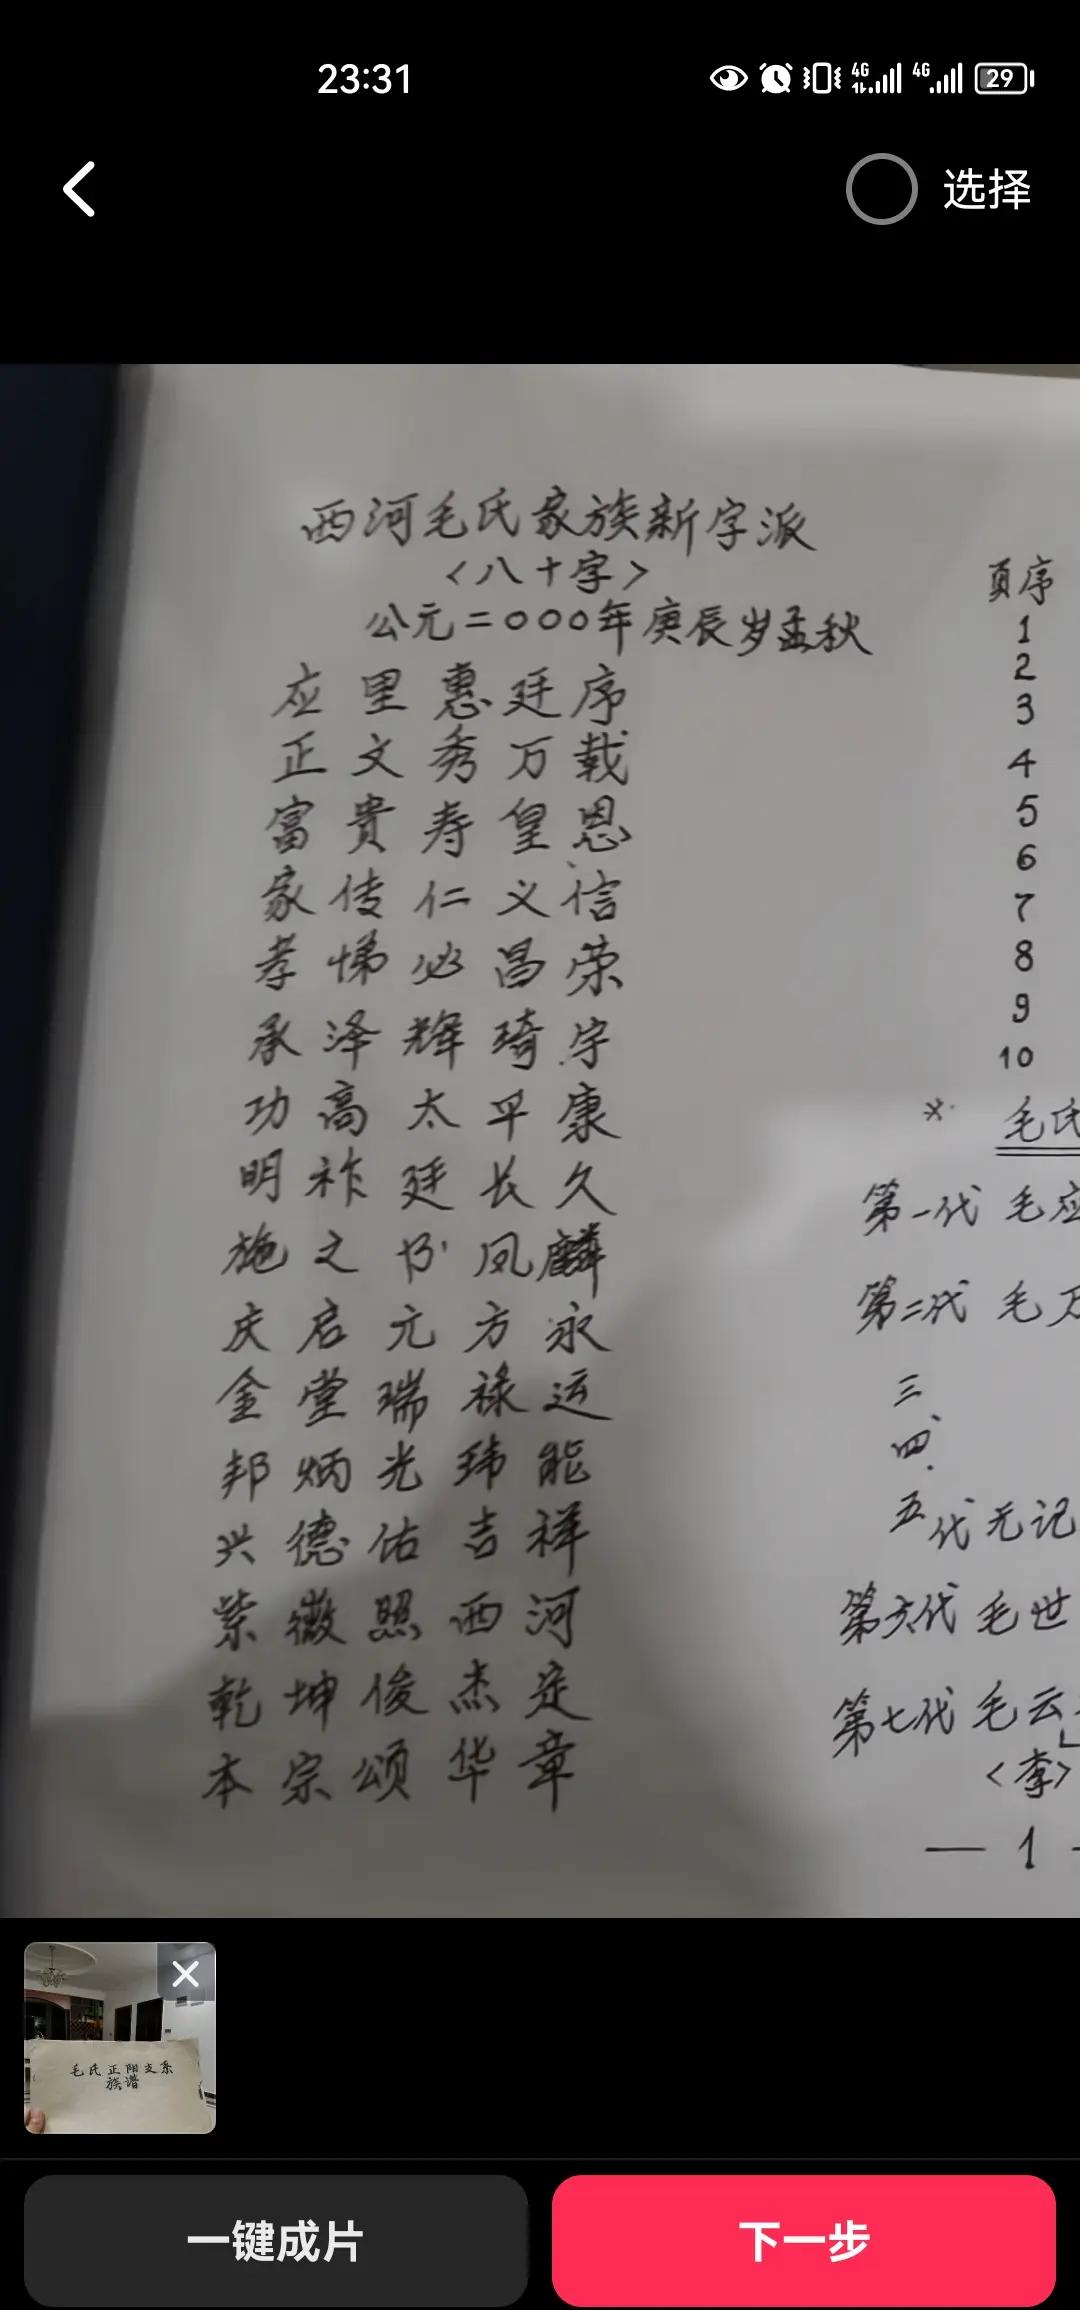 23:31
4G 4G 29
选择
西河毛氏家族新字派
<八十字>
公元二000年庚辰岁孟秋
应里惠廷序
正文秀万载
富贵寿皇恩
家传仁义信
孝悌必昌荣
承泽辉琦宇
功高太平康
明祚廷长久
施之书凤麟
庆启元方永
金堂瑞禄运
邦炳光玮能
兴德佑吉祥
紫微照西河
乾坤俊杰定
本宗颂华章
页序
1
2
3
4
5
6
7
8
9
10
* 毛氏
第一代 毛应
第二代 毛万
三
四
五代无记
第六代 毛世
第七代 毛云
<李>
— 1
毛氏正阳支系
族谱
一键成片
下一步